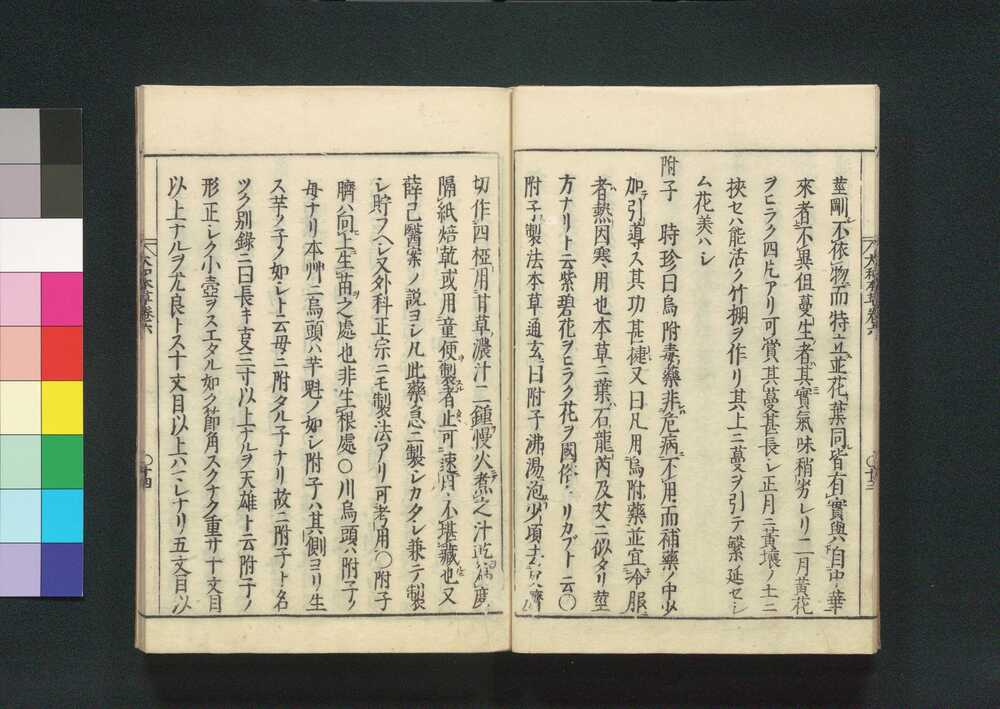 莖剛不依物而特立並花葉同皆有實與自中華
來者不異但蔓生者其實氣味稍劣レリ二月黄花
ヲヒラク四片アリ可賞其蔓甚長シ正月ニ黄壤ノ土ニ
挾セハ能活ク竹棚ヲ作リ其上ニ蔓ヲ引テ繁延セシ
ム花美ハシ
附子 時珍曰烏附毒藥非危病不用而補藥ノ中少
加引導ス其功甚捷又曰凡用烏附藥並宜冷服
者熱因寒用也本草ニ葉石龍芮及艾ニ似タリ莖
方ナリト云紫碧花ヲヒラク花ヲ國俗リカブト云〇
附子製法本草通玄曰附子沸湯泡少頃去皮臍
大和本草卷六
〇十三
切作四椏用甘草濃汁二鍾慢火煮之汁乾爲度
隔紙焙乾或用童便製者止可速用不堪藏也又
薛己醫案ノ説ヨシ凡此藥急ニ製シカタシ兼テ製
シ貯フヘシ又外科正宗ニモ製法アリ可考用〇附子
臍ハ向上生苗之處也非生根處〇川烏頭ハ附子ノ
母ナリ本艸ニ烏頭ハ芋魁ノ如シ附子ハ其側ヨリ生
ス芋ノ子ノ如シト云母ニ附タル子ナリ故ニ附子ト名
ツク別錄ニ曰長キ亊三寸以上ナルヲ天雄ト云附子ノ
形正シク小壺ヲスエタル如ク節角スクナク重サ十文目
以上ナルヲ尤良トス十文目以上ハシナリ五文目以
大和本草卷六
〇十四